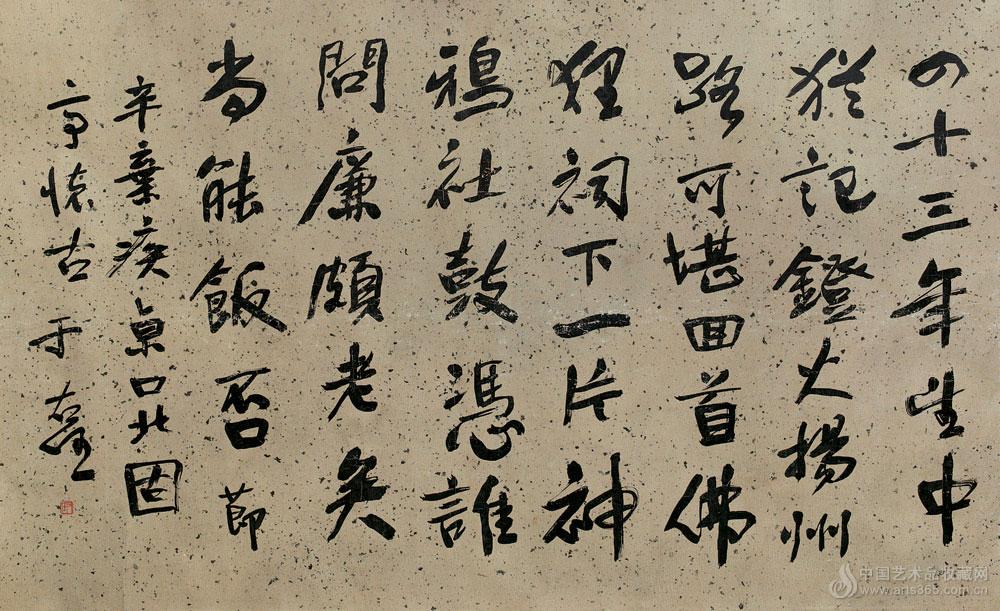 四十三年生中
猶記鐙火揚州
路可堪回首佛
狸祠下一片神
鴉社鼓憑誰
問廉頗老矣
尚能飯否 節
辛棄疾京口北固
亭懷古 于右任
中国艺术品收藏网
www.arts365.com.cn